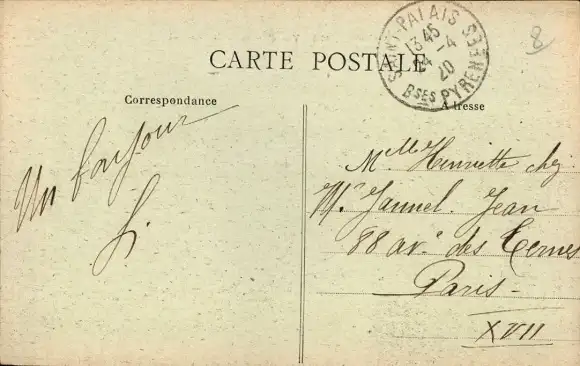 CARTE POSTALE
SAINT-PALAIS
13 45
14 -4
20
BSES PYRENEES
8
Correspondance
Adresse
Un bonjour
Melle Henriette chez
Mr Jaunel. Jean
88 av. des Ternes
Paris-
XVII